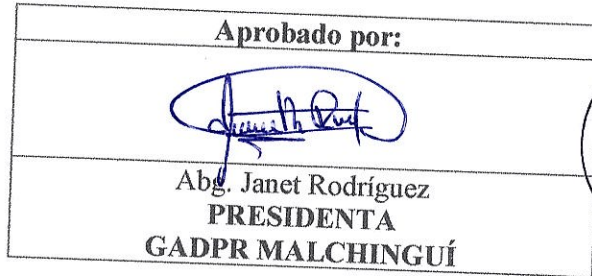 Aprobado por:
Abg. Janet Rodríguez
PRESIDENTA
GADPR MALCHINGUÍ